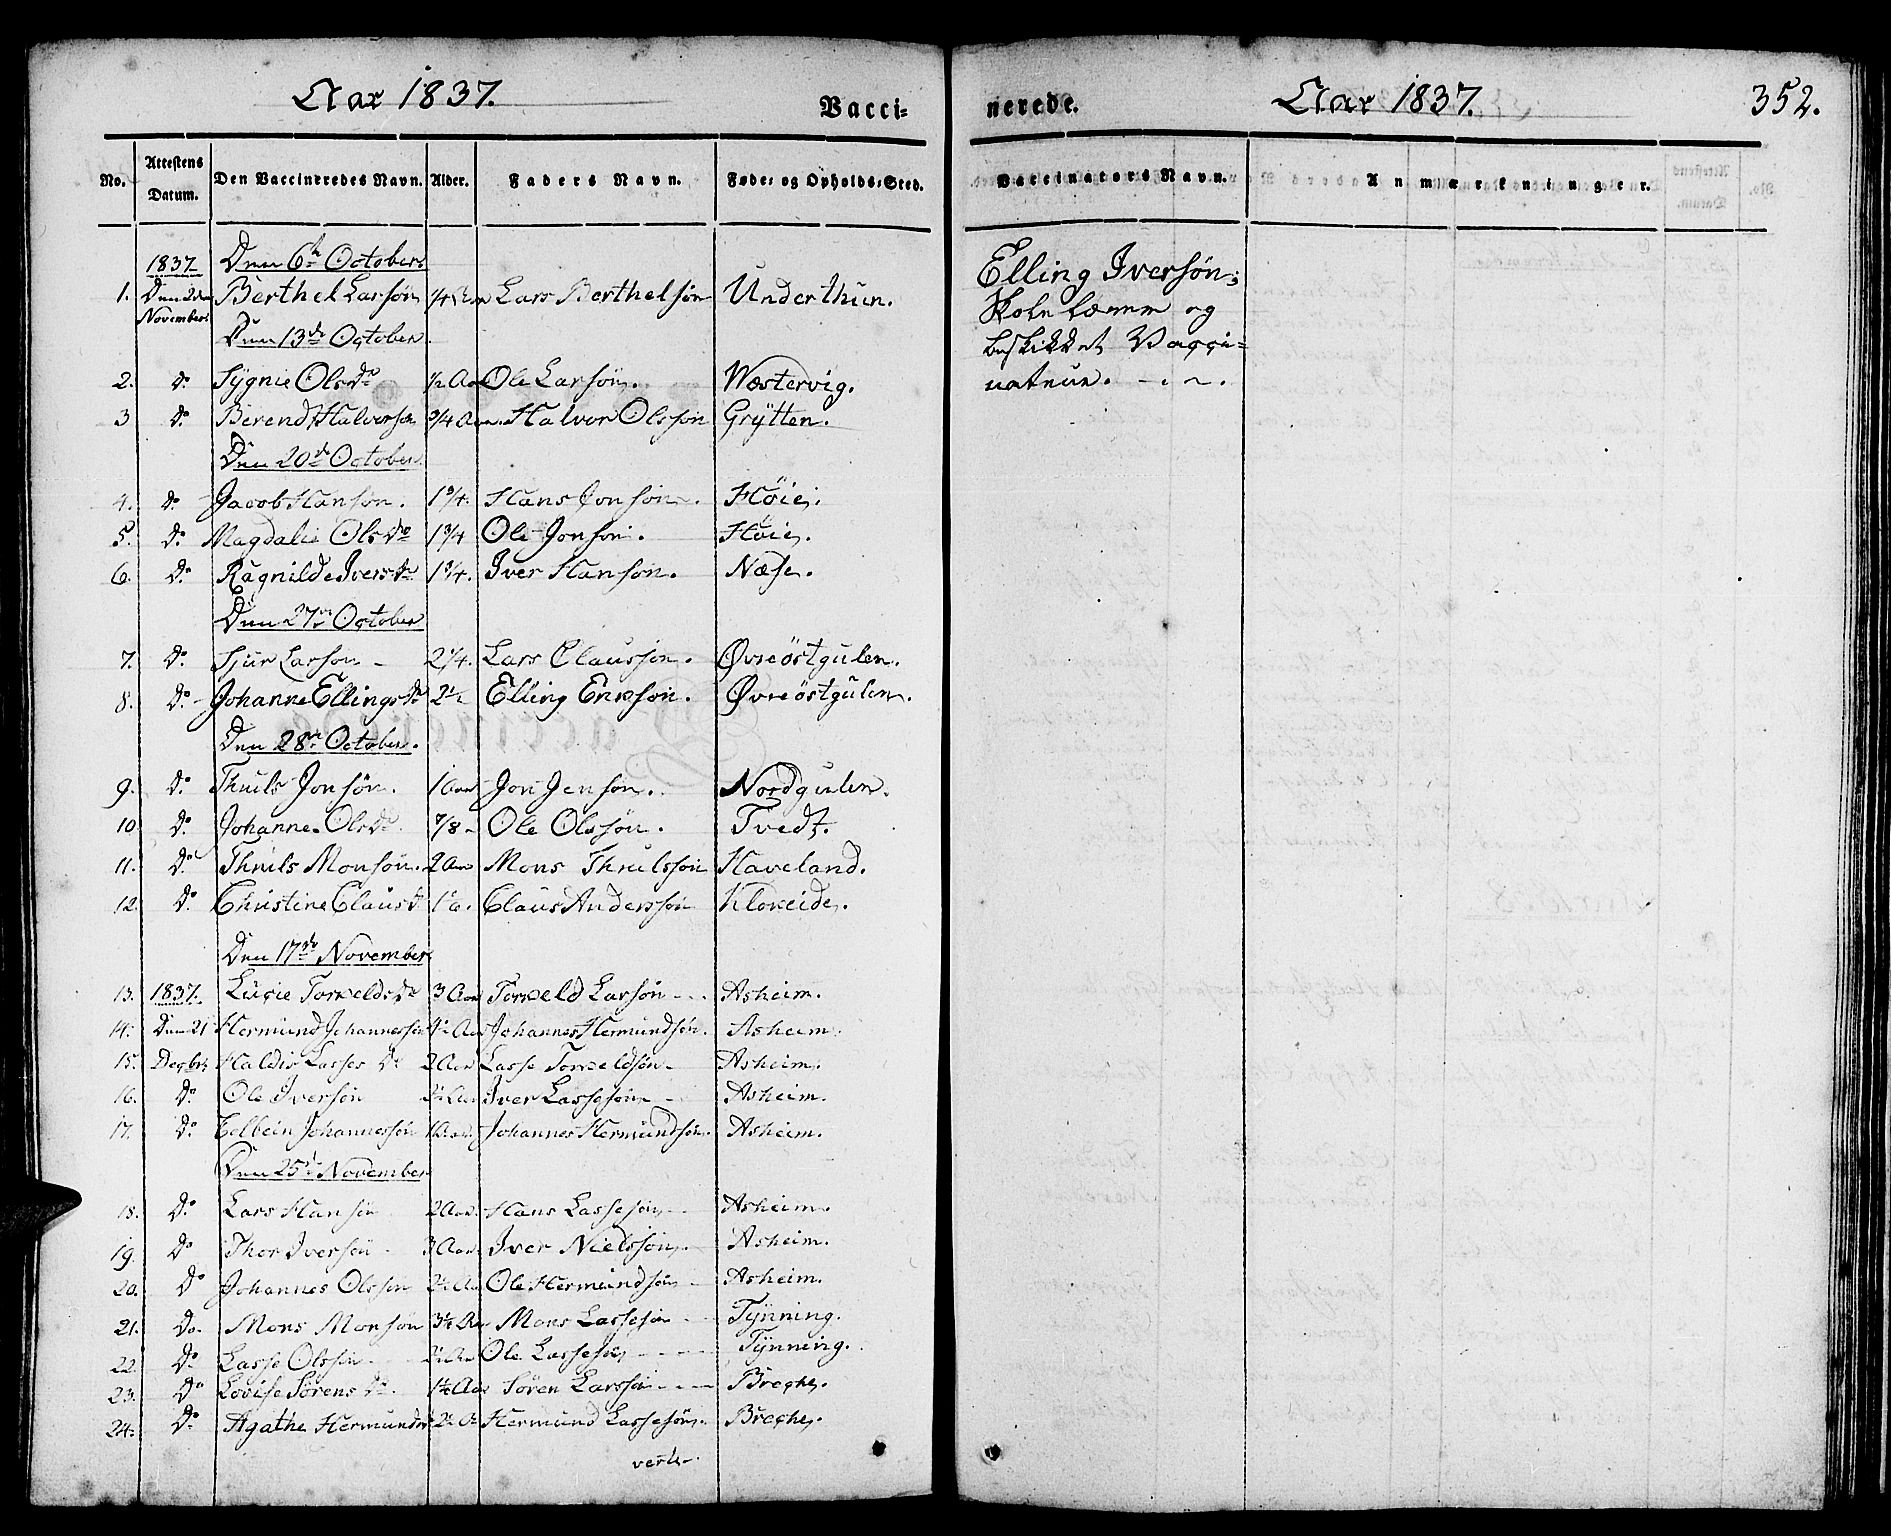 Aar 1837.
Vacci-
No. Attestens Datum. Den Vaccineredes Navn. Alder. Faders Navn. Føde- og Opholds-Sted.
1837 Den 6te October
1. Den 2den Berthel Larsøn 1/4 Aar Lars Berthelsøn Underthun.
November
Den 13de October
2. do Sÿgnie Olsdr 1/2 Aar Ole Larsøn. Wæstervig.
3 do Berend Halvorsøn 3/4 Aar. Halvor Olsson Grÿtten.
Den 20de October
4. do Jacob Hansøn. 1 3/4. Hans Jonsøn Høie.
5. do Magdalie Olsdr 1 3/4 Ole Jonsøn. Høie.
6. do Ragnilde Iversdr 1 3/4. Iver Hansøn. Næse.
Den 27de October
7. do Sjur Larsøn 2 1/4. Lars Claussøn. Øvreöstgulen.
8. do Johanne Ellingsdr 2 1/2 Elling Ericsøn. Øvreöstgulen.
Den 28de October.
9. do Thruls Jonsøn. 1 Aar Jon Jensøn. Nordgulen.
10 do Johanne Olsdr 7/8 Ole Olssøn. Tvedt.
11. do Thruls Monsøn. 2 Aar Mons Thrulssøn Haveland.
12. do Christine Clausdr Claus Anderssøn Kloveide.
Den 17de November
13. 1837. Lucie Torveldsdr 3 Aar Torveld Larsøn Asheim.
14. Den 21 Hermund Johannessøn Johannes Hermundsøn. Asheim.
15. Decbr. Haldis Lassesdr 2 Aar Lasse Torveldsøn Asheim.
16. do Ole Iversøn Iver Lassesøn Asheim.
17. do Johannessøn 1 Aar. Johannes Hermundsøn. Asheim.
Den 25de November
18. do Lars Hansøn 2 Aar. Hans Lassesøn Asheim.
19. do Thor Iversøn 3 Aar Iver Nielssøn. Asheim.
20. do Johannes Olssøn Ole Hermundsøn Asheim.
21. Do. Mons Monsøn Mons Lassesøn Tÿnning.
22. do Lasse Olssøn Ole Lassesøn Tÿnning.
23. do Lovise Sørensdr Søren Larssøn Breche.
24. do Agathe Hermundsdr Hermund Lassesøn. Breche.
verte
nerede. Aar 1837. 352.
Vaccinators Navn. Anmærkninger.
Elling Iversøn;
Skolelærer og
beskikket Vacci-
nateur.